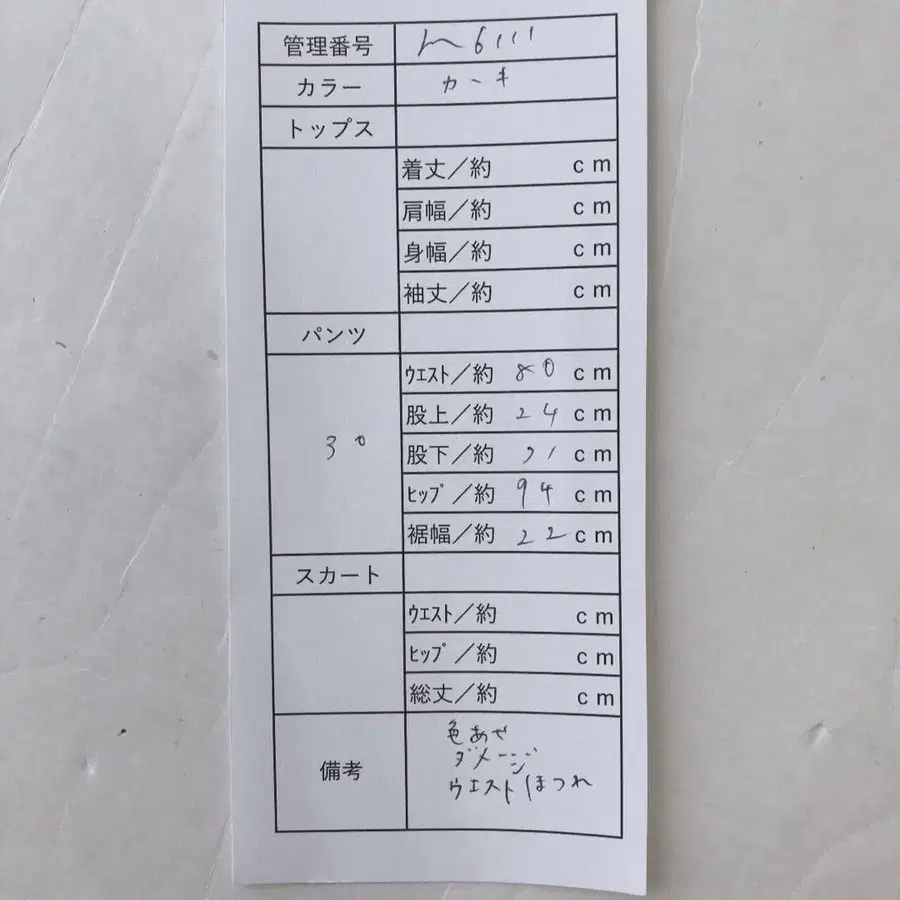 管理番号 m6111
カラー カーキ
トップス
着丈／約 cm
肩幅／約 cm
身幅／約 cm
袖丈／約 cm
パンツ
30
ウエスト／約 80 cm
股上／約 24 cm
股下／約 cm
ヒップ／約 94 cm
裾幅／約 22 cm
スカート
ウエスト／約 cm
ヒップ／約 cm
総丈／約 cm
備考
色あせ
ダメージ
ウエストほつれ